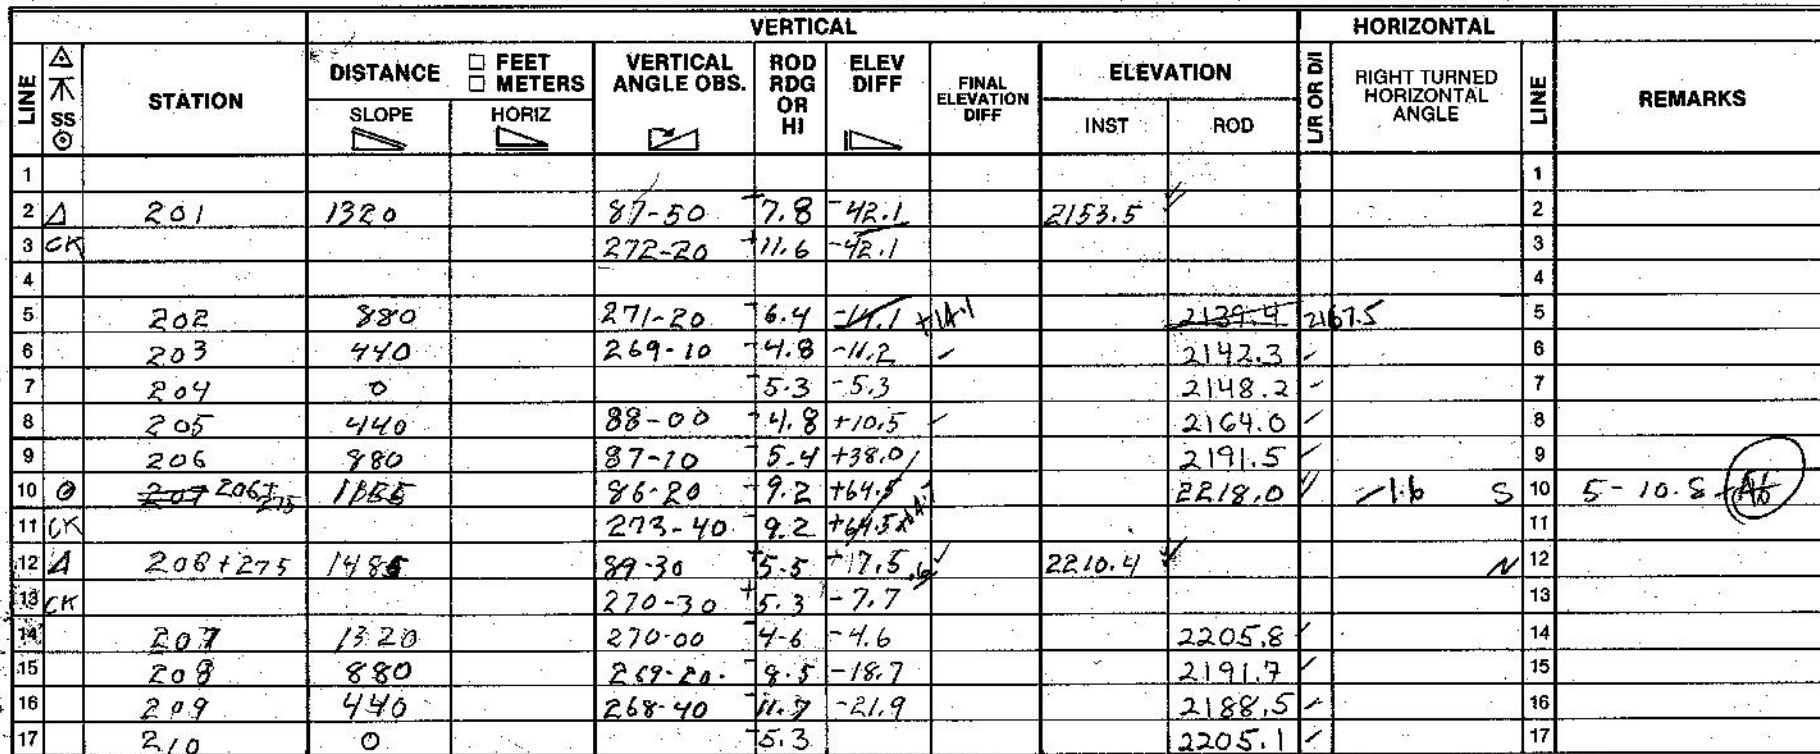 VERTICAL HORIZONTAL
LINE SS STATION DISTANCE FEET METERS SLOPE HORIZ VERTICAL ANGLE OBS. ROD RDG OR HI ELEV DIFF FINAL ELEVATION DIFF ELEVATION INST ROD L/R OR D/I RIGHT TURNED HORIZONTAL ANGLE LINE REMARKS
1 1
2 Δ 201 1320 87-50 -7.8 -42.1 2153.5 2
3 CK 272-20 +11.6 -42.1 3
4 4
5 202 880 271-20 -6.4 -14.1 +14.1 2139.4 2167.5 5
6 203 440 269-10 -4.8 -11.2 2142.3 6
7 204 0 -5.3 -5.3 2148.2 7
8 205 440 88-00 -4.8 +10.5 2164.0 8
9 206 880 87-10 -5.4 +38.0 2191.5 9
10 207 206+275 86-20 -9.2 +64.5 2218.0 -1.6 S 10 5-10.8
11 CK 273-40 9.2 +64.5 11
12 Δ 206+275 1485 89-30 +5.5 -17.5 .6 2210.4 N 12
13 CK 270-30 +5.3 -7.7 13
14 207 1320 270-00 4-6 -4.6 2205.8 14
15 208 880 269-20 -8.5 -18.7 2191.7 15
16 209 440 268-40 11.7 -21.9 2188.5 16
17 210 0 -5.3 2205.1 17